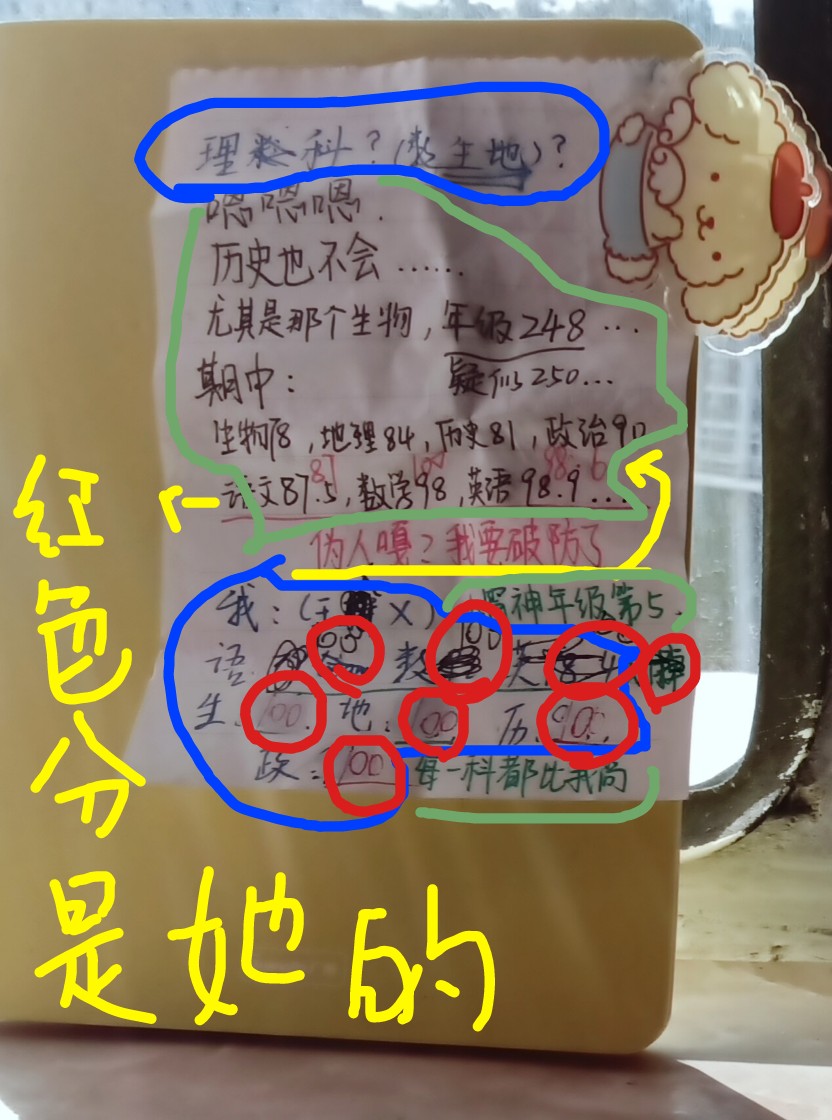 理科？（数生地）？
嗯嗯嗯.
历史也不会……
尤其是那个生物，年级248…
期中： 疑似250…
生物78，地理84，历史81，政治90
87 100 98.6
语文87.5，数学98，英语98.9……
伪人嘎？我要破防了
我：( X) 神年级第5.
100
语 数 英
生：100 地：100 历：100
政：100 每一科都比我高
红色分是她的